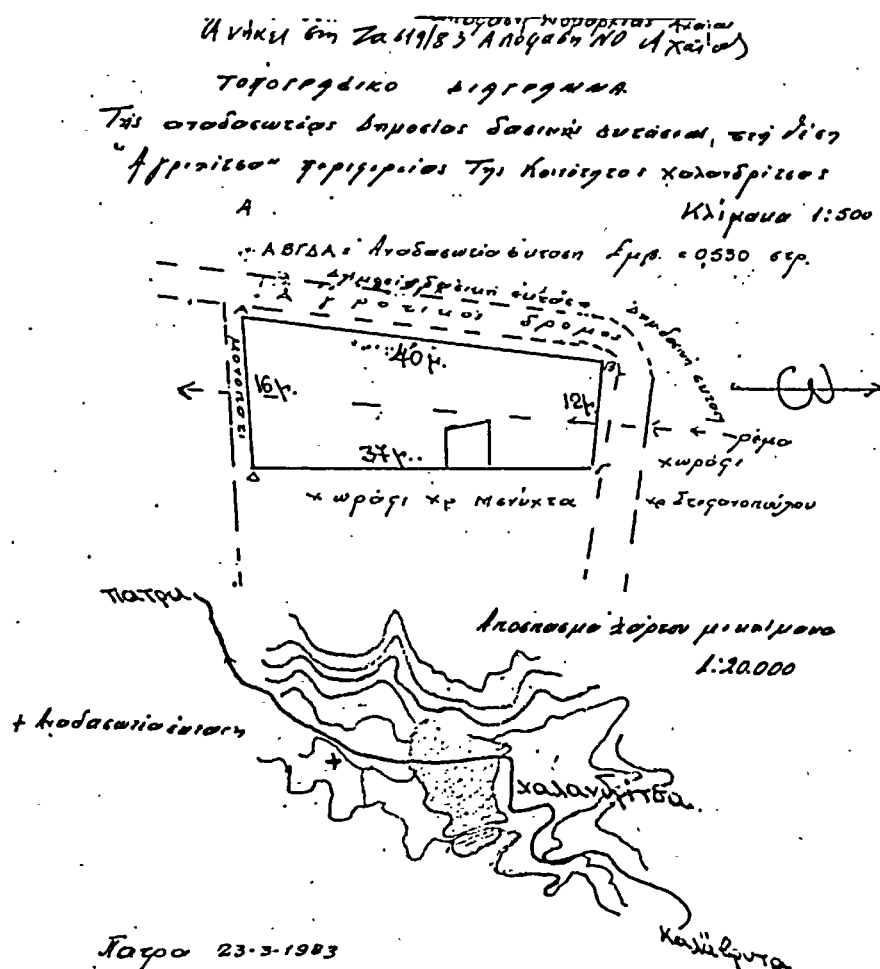 Ανήκει στη 7α 619/83 Απόφαση ΝΟ Αχαΐας
ΤΟΠΟΓΡΑΦΙΚΟ ΔΙΑΓΡΑΜΜΑ
Της αναδασωτέας Δημοσίας δασικής εκτάσεως, στη θέση
"Αγριπίτσα" περιφερείας Της Κοινότητος Χαλανδρίτσας
Κλίμακα 1:500
Α
ΑΒΓΔΑ = Αναδασωτέα έκταση Εμβ. = 0,530 στρ.
Δημοσία δασική έκταση
δρόμος
Δημ δασική έκταση
Α
Β
μονοπάτι
40 μ.
16 μ.
12 μ.
37 μ.
ρέμα
Δ
Γ
χωράφι χρ Μενύχτα
χωράφι
χρ Στεφανοπούλου
Πάτρα
Απόσπασμα χάρτου με κλίμακα
1:20.000
+ Αναδασωτέα έκταση
+
Χαλανδρίτσα
Καλάβρυτα
Πάτρα 23-3-1983